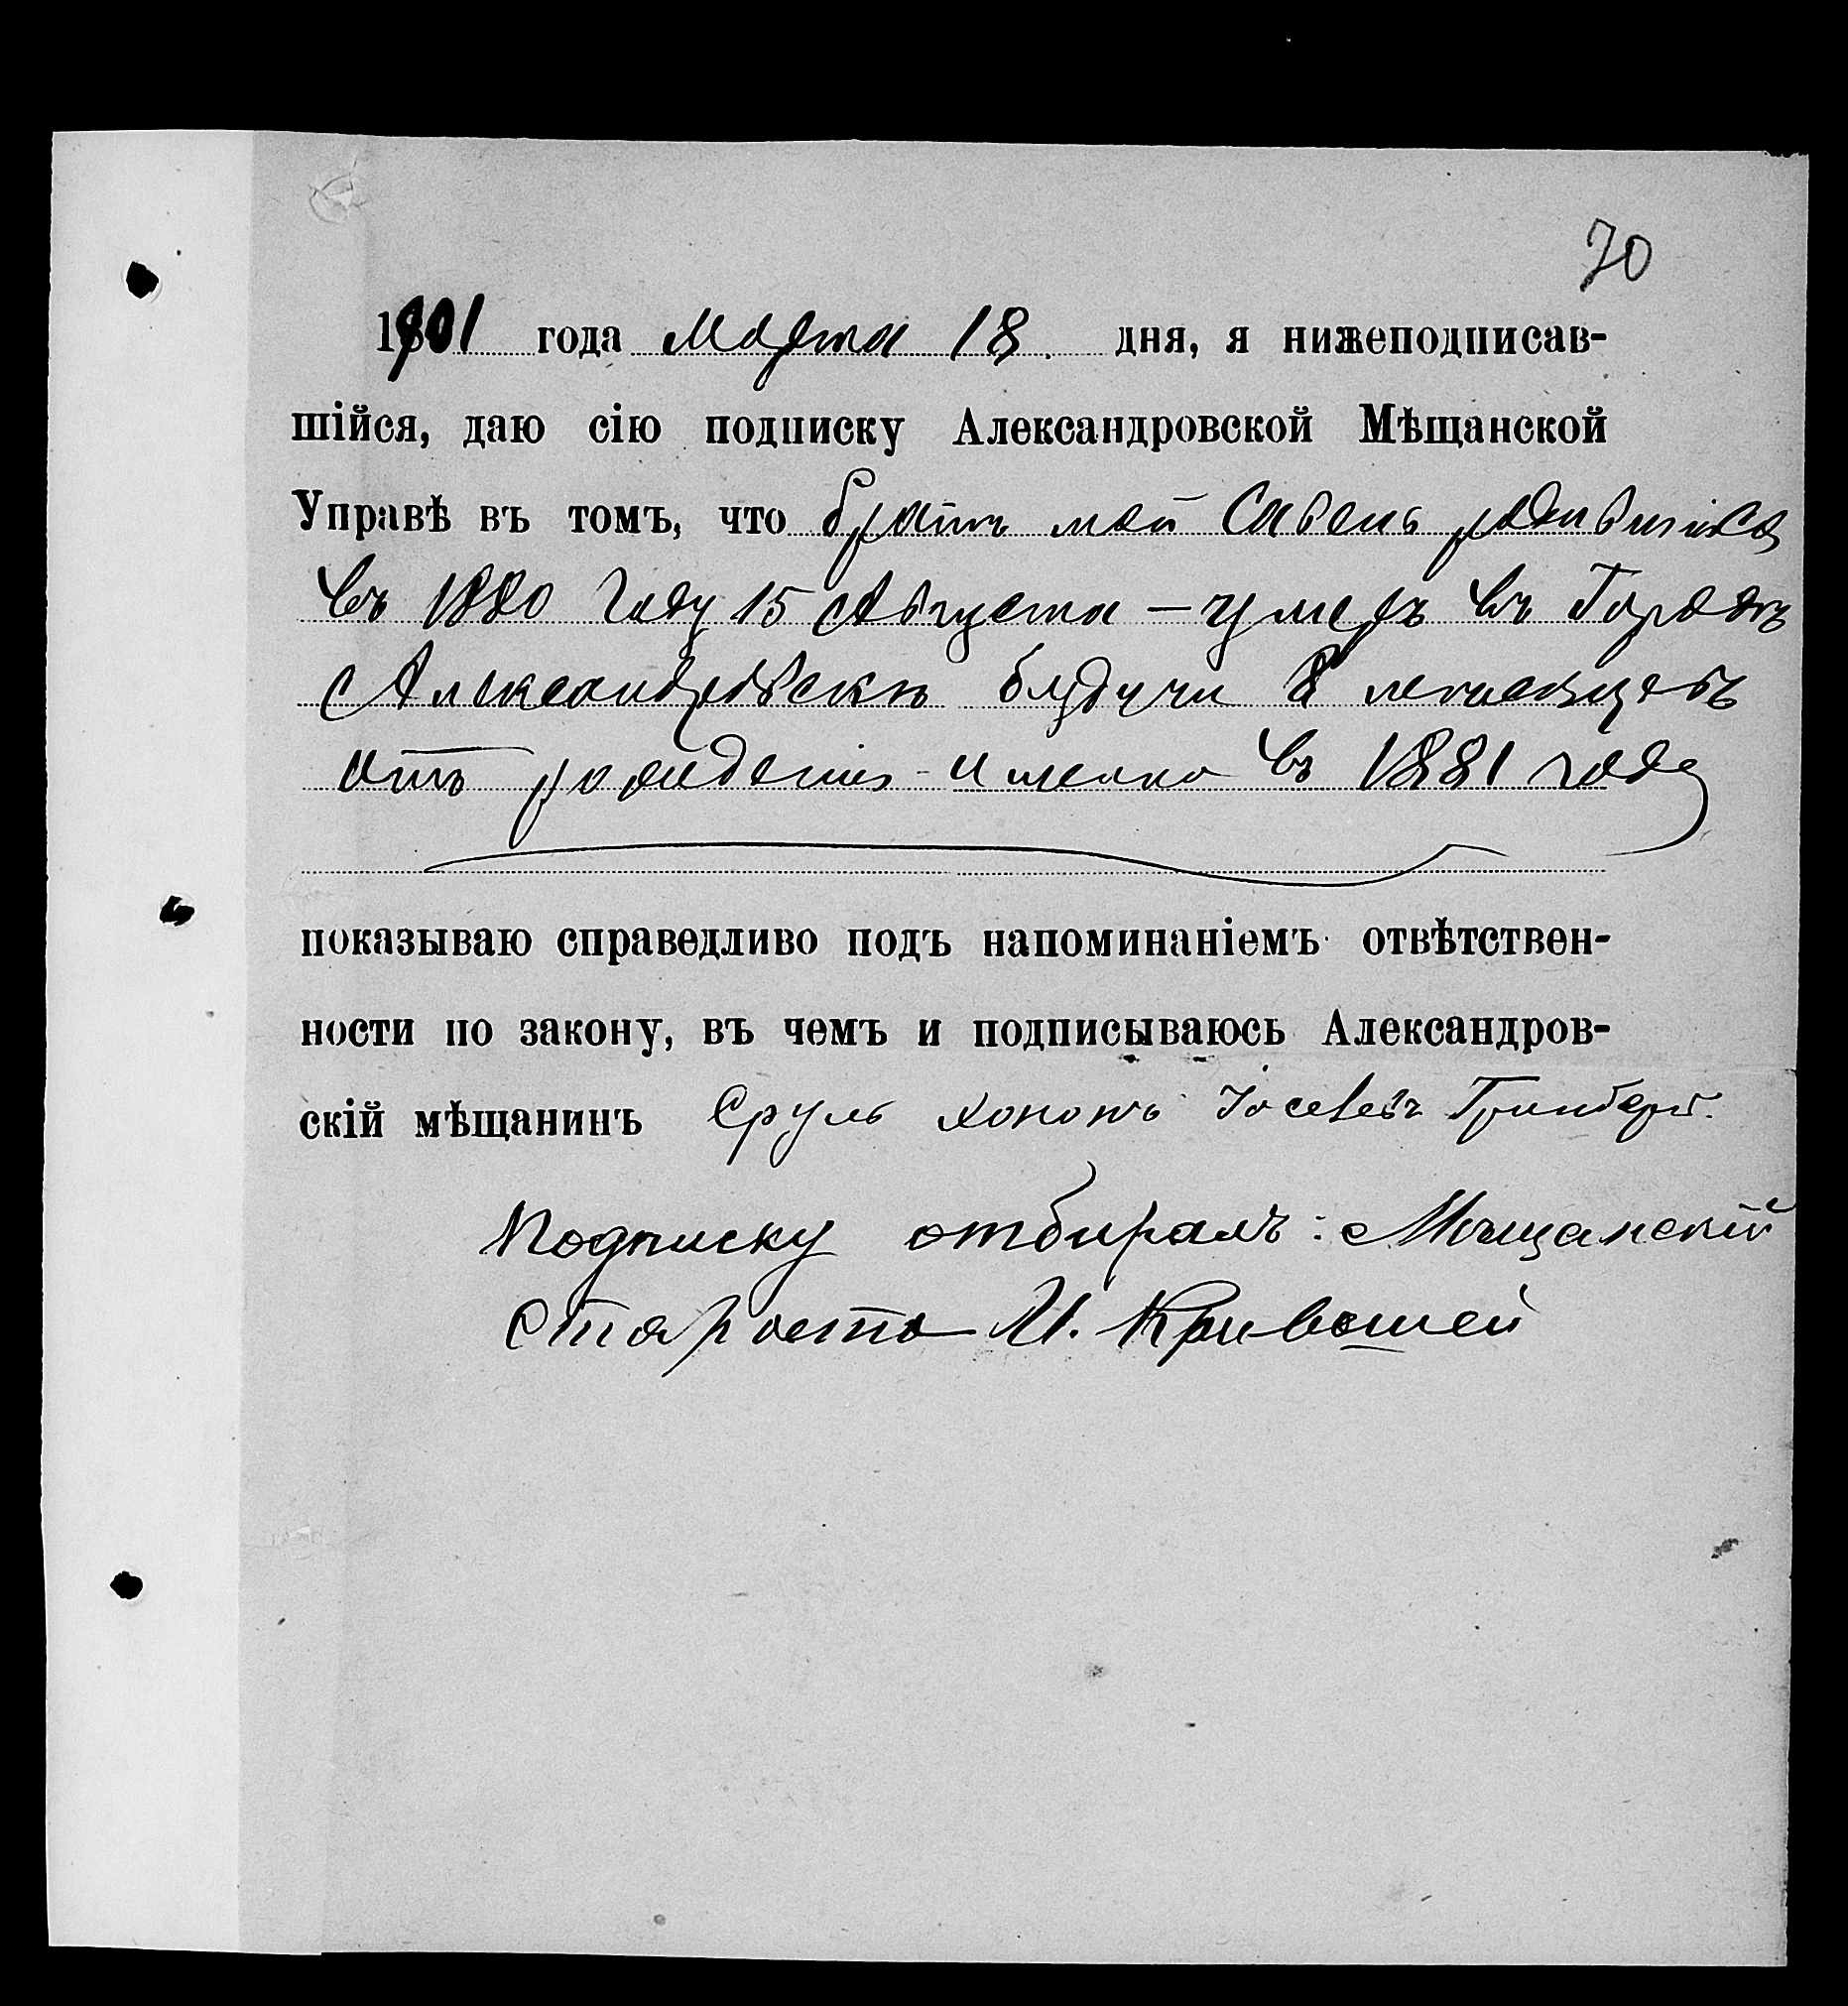 70
1901 года Марта 18 дня, я нижеподписав-
шійся, даю сію подписку Александровской Мѣщанской
Управѣ въ томъ, что братъ мой родившійся
въ 1880 году 15 Августа — умеръ въ Городѣ
Александровскѣ будучи 8 месяцевъ
отъ рождения именно въ 1881 году
показываю справедливо подъ напоминаніемъ отвѣтствен-
ности по закону, въ чемъ и подписываюсь Александров-
скій мѣщанинъ Сруль Хононъ Іосевевъ Гринбергъ.
Подписку отбиралъ: Мѣщанскій
Староста И. Кривошей